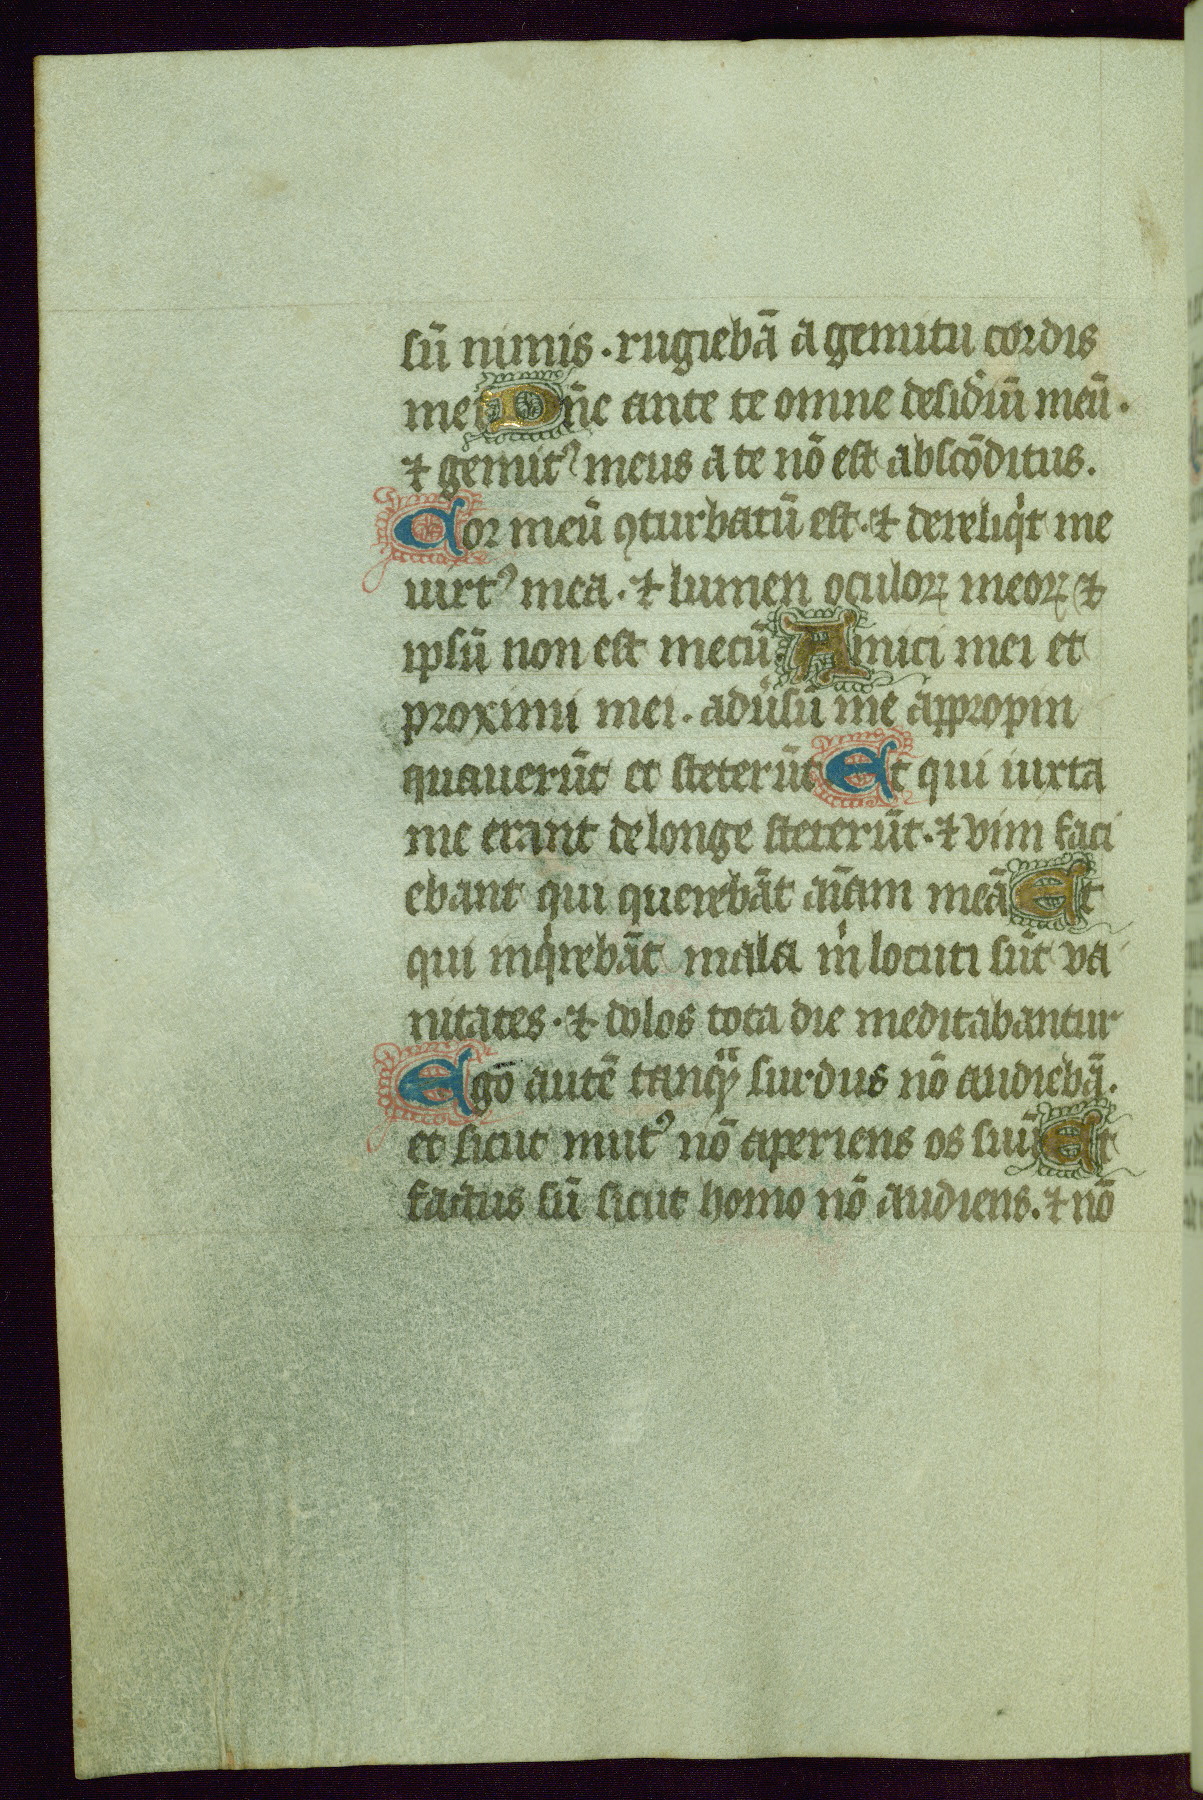 sū nimis . rugiebā a gemitu cordis
mei Dn̄e ante te omne desid̾iū meū .
⁊ gemitꝰ meus a te nō est abscōditus .
Cor meū ꝯturbatū est . ⁊ dereliqͥt me
uirtꝰ mea . ⁊ lumen oculoꝝ meoꝝ ⁊
ipsū non est mecū Amici mei et
proximi mei . adūsū me appropin
quauerūt et steterūt Et qui iuxta
me erant de longe steterūt . ⁊ vim faci
ebant qui querebāt aīam meā Et
qui inqͥrebāt mala mͥ locuti sūt va
nitates . ⁊ dolos tota die meditabantur
Ego autē tanqᷓ surdus nō audiebā .
et sicut mutꝰ nō aperiens os suū Et
factus sū sicut homo nō audiens . ⁊ nō